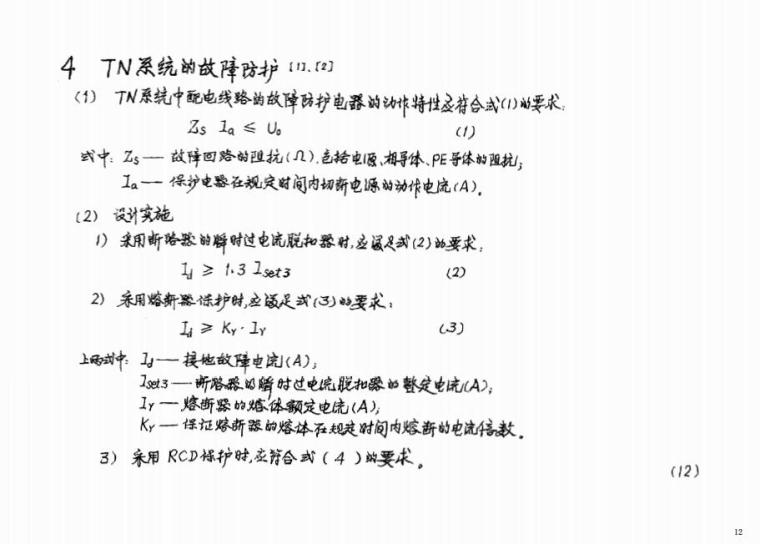 4 TN系统的故障防护 [1]、[2]
(1) TN系统中配电线路的故障防护电器的动作特性应符合式(1)的要求:
Zs Ia ≤ U₀ (1)
式中: Zs — 故障回路的阻抗(Ω),包括电源、相导体、PE导体的阻抗;
Ia — 保护电器在规定时间内切断电源的动作电流(A)。
(2) 设计实施
1) 采用断路器的瞬时过电流脱扣器时,应满足式(2)的要求:
Id ≥ 1.3 Iset3 (2)
2) 采用熔断器保护时,应满足式(3)的要求:
Id ≥ Kr · Ir (3)
上两式中: Id — 接地故障电流(A);
Iset3 — 断路器的瞬时过电流脱扣器的整定电流(A);
Ir — 熔断器的熔体额定电流(A);
Kr — 保证熔断器的熔体在规定时间内熔断的电流倍数。
3) 采用 RCD保护时,应符合式(4)的要求。
(12)
12